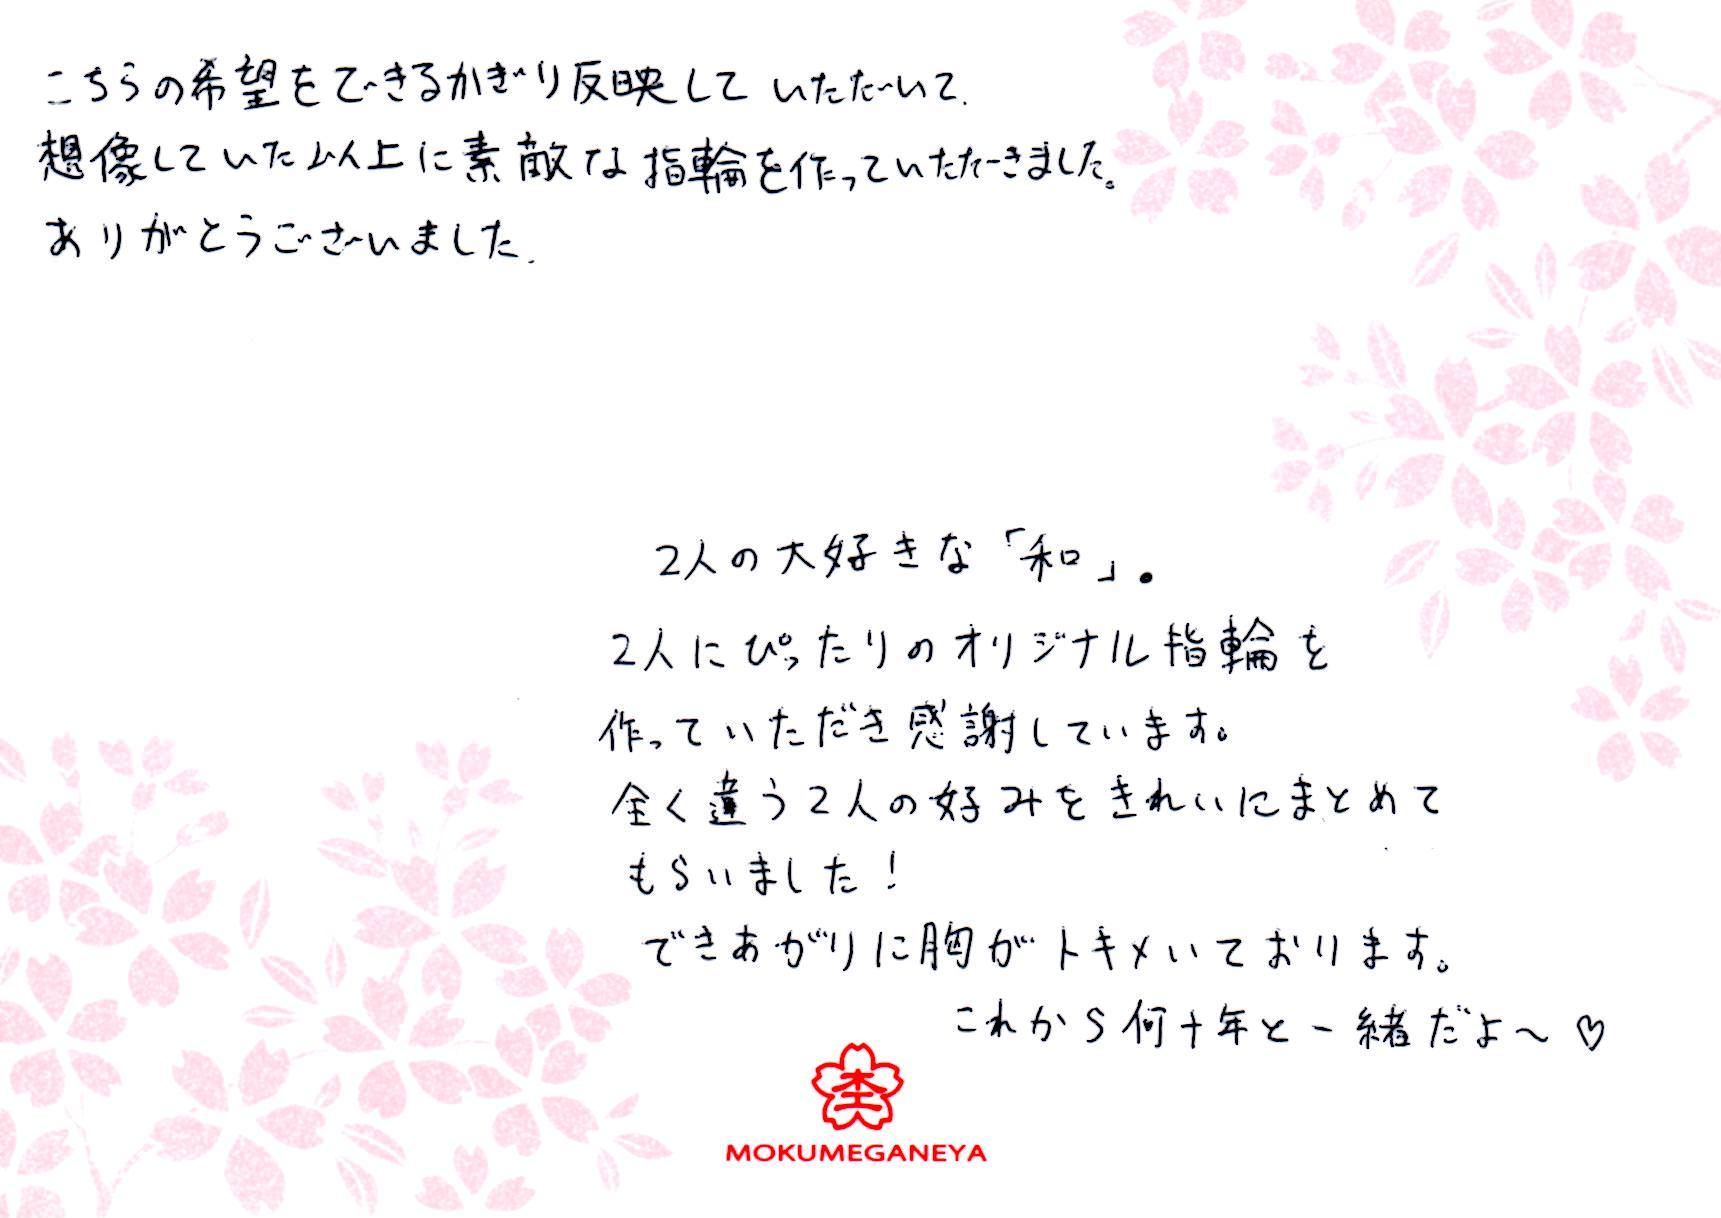 こちらの希望をできるかぎり反映して いただいて.
想像していた以上に素敵な指輪を作っていただきました。
ありがとうございました.
2人の大好きな「和」.
2人にぴったりのオリジナル指輪を
作っていただき感謝しています。
全く違う2人の好みをきれいにまとめて
もらいました!
できあがりに胸がトキメいております。
これから何十年と一緒だよ〜♡
MOKUMEGANEYA